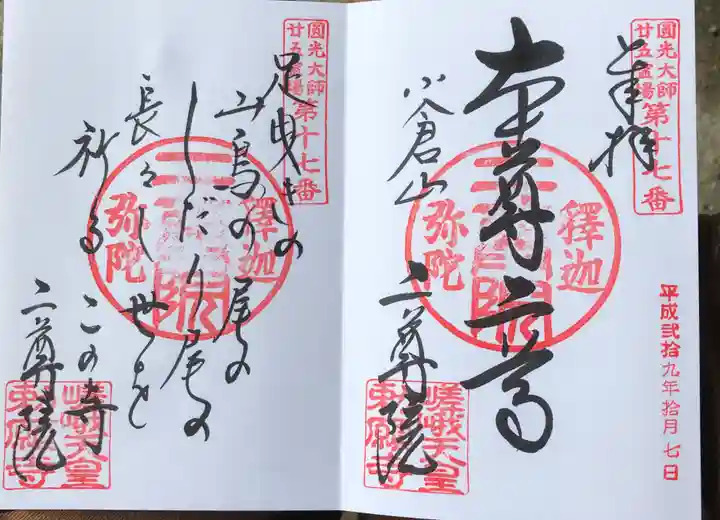 圓光大師
廿五霊場
第十七番
奉拝
平成弐拾九年拾月七日
本尊二尊
釋迦
弥陀
小倉山
二尊院
嵯峨天皇
勅願寺
圓光大師
廿五霊場
第十七番
足曳きの
山鳥の尾の
しだり尾の
長々し世を
祈る
この寺
釋迦
弥陀
二尊院
嵯峨天皇
勅願寺